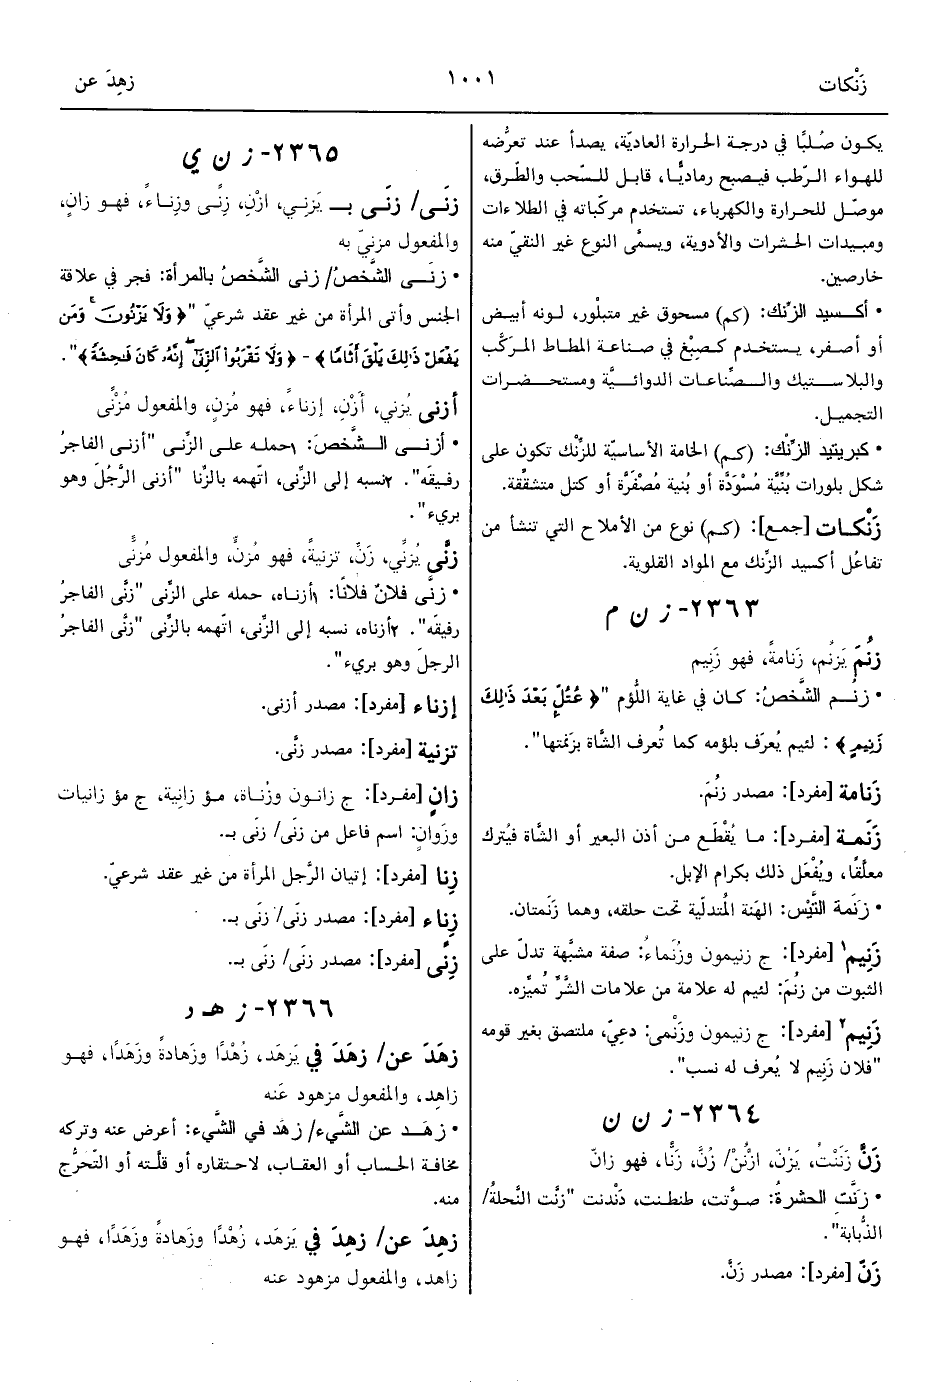 زَنْكات
١٠٠١
زهِدَ عن
يكون صُلبًا في درجة الحرارة العاديّة، يصدأ عند تعرُّضه
للهواء الرّطب فيصبح رماديًّا، قابل للسّحب والطّرق،
موصّل للحرارة والكهرباء، تستخدم مركّباته في الطلاءات
ومبيدات الحشرات والأدوية، ويسمَّى النوع غير النقيّ منه
خارصين.
• أكسيد الزِّنك: (كم) مسحوق غير متبلْور، لونه أبيض
أو أصفر، يستخدم كصِبْغ في صناعة المطاط المركَّب
والبلاستيك والصِّناعات الدوائيَّة ومستحضرات
التجميل.
• كبريتيد الزِّنْك: (كم) الخامة الأساسيّة للزِّنْك تكون على
شكل بلورات بُنِّيَّة مُسْوَدَّة أو بنية مُصْفَرَّة أو كتل متشقِّقة.
زَنْكات [جمع]: (كم) نوع من الأملاح التي تنشأ من
تفاعُل أكسيد الزِّنك مع المواد القلوية.
٢٣٦٣- ز ن م
زنُمَ يَزنُم، زَنامةً، فهو زَنِيم
• زنُم الشَّخصُ: كان في غاية اللُّؤم "﴿ عُتُلٍّ بَعْدَ ذَٰلِكَ
زَنِيمٍ﴾ : لئيم يُعرَف بلؤمه كما تُعرف الشَّاة بزَنَمتها".
زَنامة [مفرد]: مصدر زنُمَ.
زَنَمة [مفرد]: ما يُقْطَع من أذن البعير أو الشَّاة فيُترك
معلَّقًا، ويُفْعَل ذلك بكرام الإبل.
• زنَمة التَّيْس: الهَنة المُتدلّية تحت حلقه، وهما زَنَمتان.
زَنِيم١ [مفرد]: ج زنيمون وزُنَماءُ: صفة مشبَّهة تدلّ على
الثبوت من زنُمَ: لئيم له علامة من علامات الشَّرِّ تُميِّزه.
زَنِيم٢ [مفرد]: ج زنيمون وزَنْمى: دعيّ، ملتصق بغير قومه
"فلان زَنِيم لا يُعرف له نسب".
٢٣٦٤- ز ن ن
زَنَّ زَنَنْتُ، يَزِنّ، ازْنِنْ/ زِنَّ، زَنًّا، فهو زانّ
• زنَّتِ الحشرةُ: صوَّتت، طنطنت، دَنْدنت "زنَّت النَّحلةُ/
الذُّبابة".
زَنّ [مفرد]: مصدر زَنَّ.
٢٣٦٥- ز ن ي
زنَى/ زنَى بـ يَزنِي، ازْنِ، زِنًى وزِناءً، فهو زانٍ،
والمفعول مزنيّ به
• زنَى الشَّخصُ/ زنى الشَّخصُ بالمرأة: فجر في علاقة
الجنس وأتى المرأة من غير عقد شرعيّ "﴿ وَلَا يَزْنُونَ ۚ وَمَن
يَفْعَلْ ذَٰلِكَ يَلْقَ أَثَامًا ﴾ - ﴿ وَلَا تَقْرَبُوا الزِّنَىٰ إِنَّهُ كَانَ فَاحِشَةً ﴾".
أزنى يُزني، أَزْنِ، إزناءً، فهو مُزنٍ، والمفعول مُزْنًى
• أزنى الشَّخصَ: ١حمله على الزِّنى "أزنى الفاجرُ
رفيقَه". ٢نسبه إلى الزِّنى، اتّهمه بالزِّنا "أزنى الرَّجُلَ وهو
بريء".
زنَّى يُزنِّي، زَنِّ، تزنيةً، فهو مُزنٍّ، والمفعول مُزنًّى
• زنَّى فلانٌ فلانًا: ١أزناه، حمله على الزِّنى "زنَّى الفاجرُ
رفيقَه". ٢أزناه، نسبه إلى الزِّنى، اتّهمه بالزِّنى "زنَّى الفاجرُ
الرجلَ وهو بريء".
إزناء [مفرد]: مصدر أزنى.
تزنية [مفرد]: مصدر زنَّى.
زانٍ [مفرد]: ج زانون وزُناة، مؤ زانِية، ج مؤ زانيات
وزَوانٍ: اسم فاعل من زنَى/ زنَى بـ.
زِنا [مفرد]: إتيان الرَّجل المرأة من غير عقد شرعيّ.
زِناء [مفرد]: مصدر زنَى/ زنَى بـ.
زِنًى [مفرد]: مصدر زنَى/ زنَى بـ.
٢٣٦٦- ز هـ د
زهَدَ عن/ زهَدَ في يَزهَد، زُهْدًا وزَهادةً وزَهَدًا، فهو
زاهِد، والمفعول مزهود عَنه
• زهَد عن الشَّيء/ زهَد في الشَّيء: أعرض عنه وتركه
مخافة الحساب أو العقاب، لاحتقاره أو قلّته أو التّحرُّج
منه.
زهِدَ عن/ زهِدَ في يَزهَد، زُهْدًا وزَهادةً وزَهَدًا، فهو
زاهد، والمفعول مزهود عنه